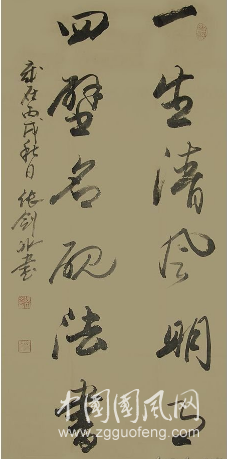 一生清风明月
四壁名砚法書
歲在丙戌秋日 张剑書
中國國風网
www.zgguofeng.com